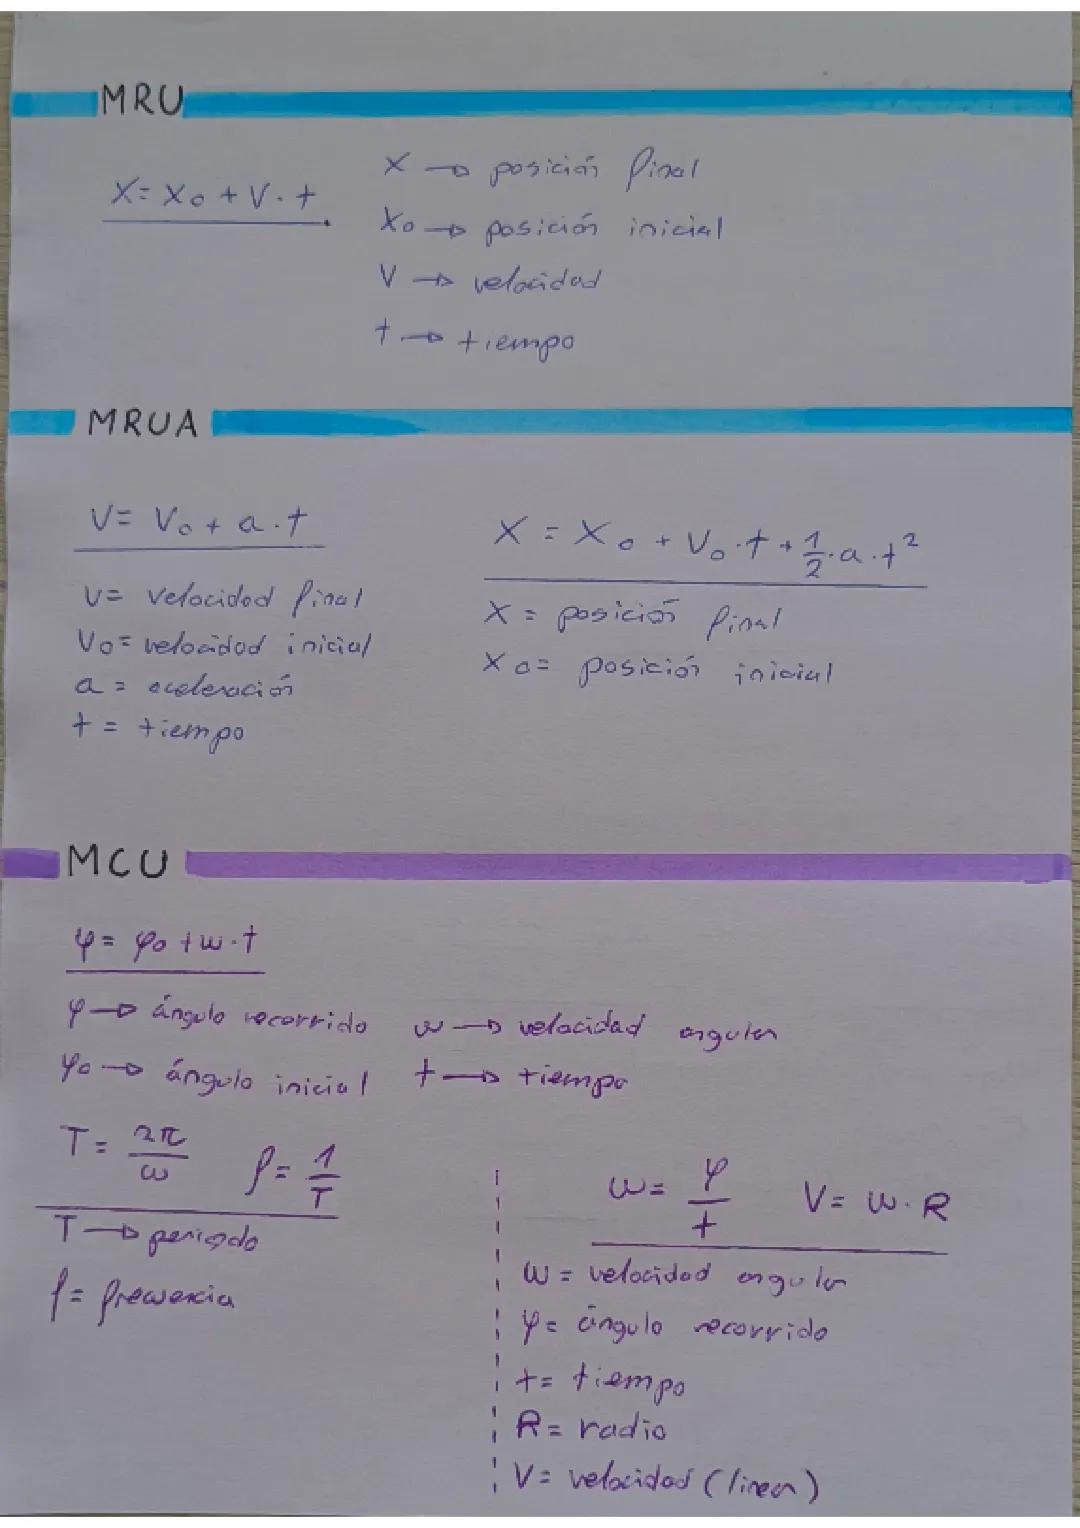 MRU
X = X₀ + V · t
X → posición final
X₀ → posición inicial
V → velocidad
t → tiempo
MRUA
V = V₀ + a · t
V = velocidad final
V₀ = velocidad inicial
a = aceleración
t = tiempo
X = X₀ + V₀ · t + 1/2 · a · t²
X = posición final
X₀ = posición inicial
MCU
φ = φ₀ + ω · t
φ → ángulo recorrido
φ₀ → ángulo inicial
ω → velocidad angular
t → tiempo
T = 2π/ω f = 1/T
T → periodo
f = frecuencia
ω = φ/t V = ω · R
ω = velocidad angular
φ = ángulo recorrido
t = tiempo
R = radio
V = velocidad (linear)